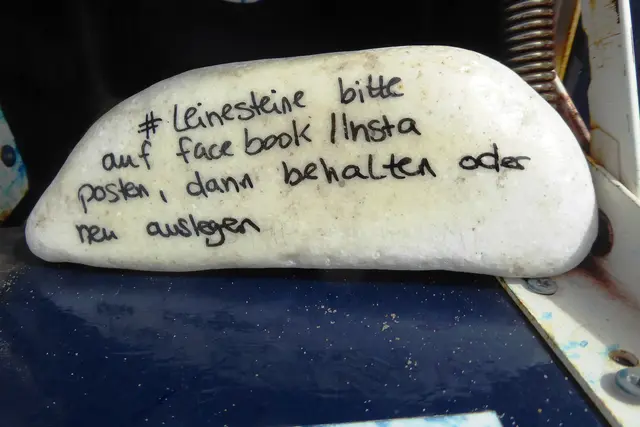 # Leinesteine bitte
auf face book /Insta
posten, dann behalten oder
neu auslegen